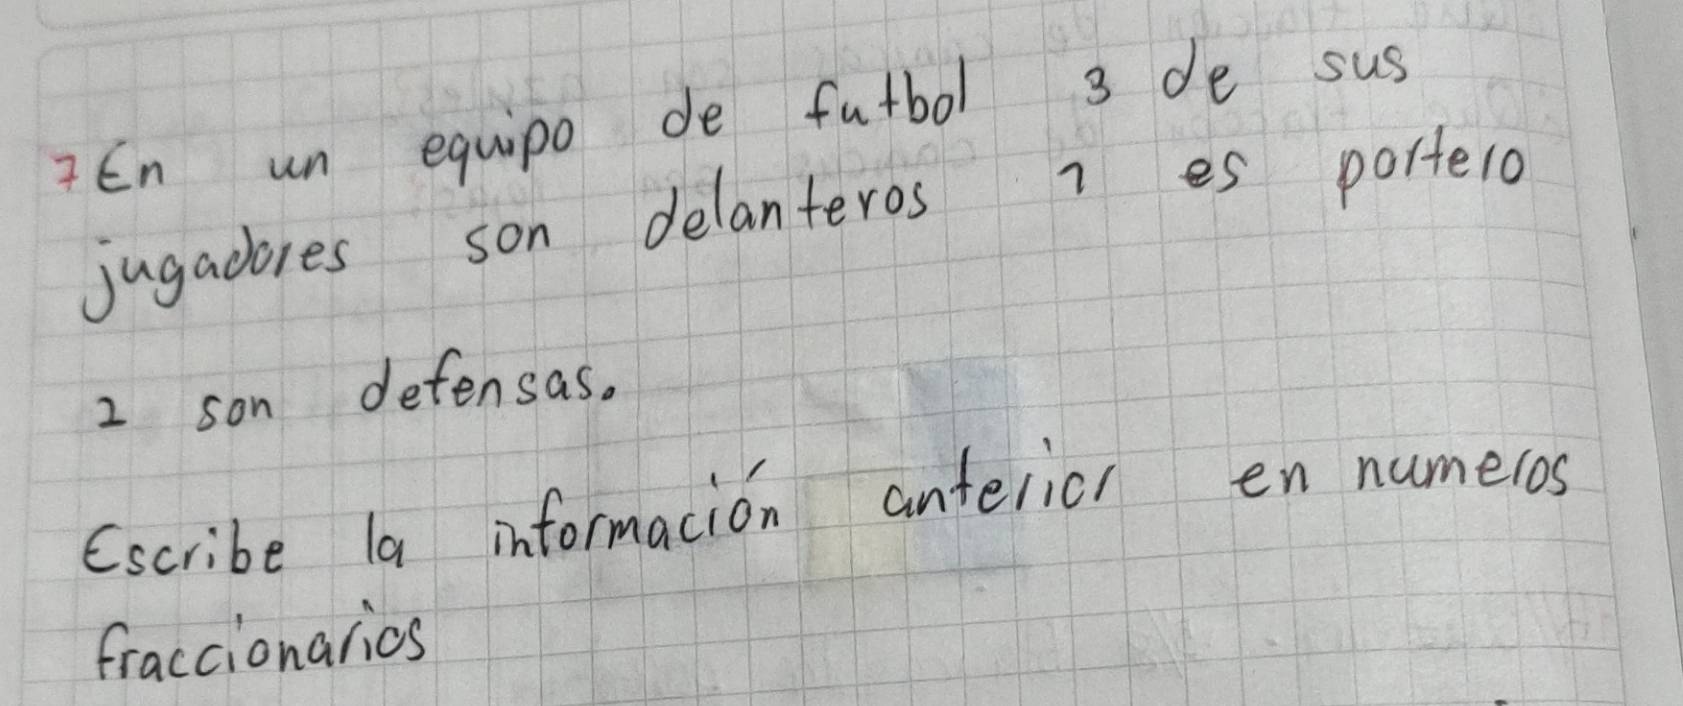 7 En un equipo de futbol 3 de sus
jugadores son delanteros 1 es portero
2 son defensas.
Escribe la información anterior en numeros
fraccionarios